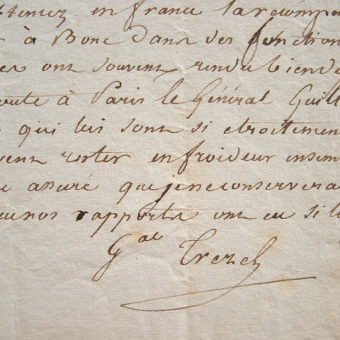 ttenez en france la récompen
à Bone dans des fonction
es ont souvent rendu bien d
oute à Paris le Général Guill
qui lui sont si etroitemen
vent rester en froideur ensem
assuré que je ne conservera
nos rapports ont eu si l
Gal Trezel